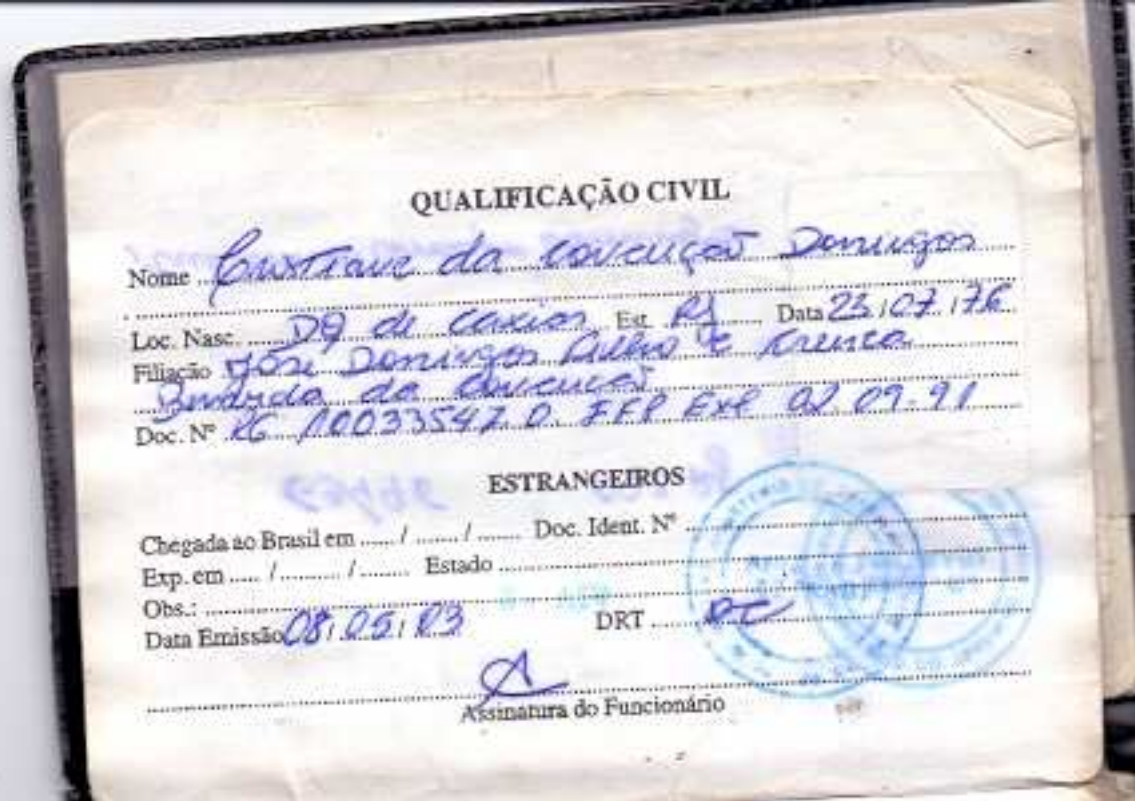 QUALIFICAÇÃO CIVIL
Nome Cristiane da Conceição Domingos
Loc. Nasc. DQ de Caxias Est. RJ Data 23/07/76
Filiação José Domingos Filho e Creusa
da Conceição
Doc. Nº RG 10033547.0. IFP Exp 02.09.91
ESTRANGEIROS
Chegada ao Brasil em / / Doc. Ident. Nº
Exp. em / / Estado
Obs.:
Data Emissão 08/05/03 DRT
Assinatura do Funcionário